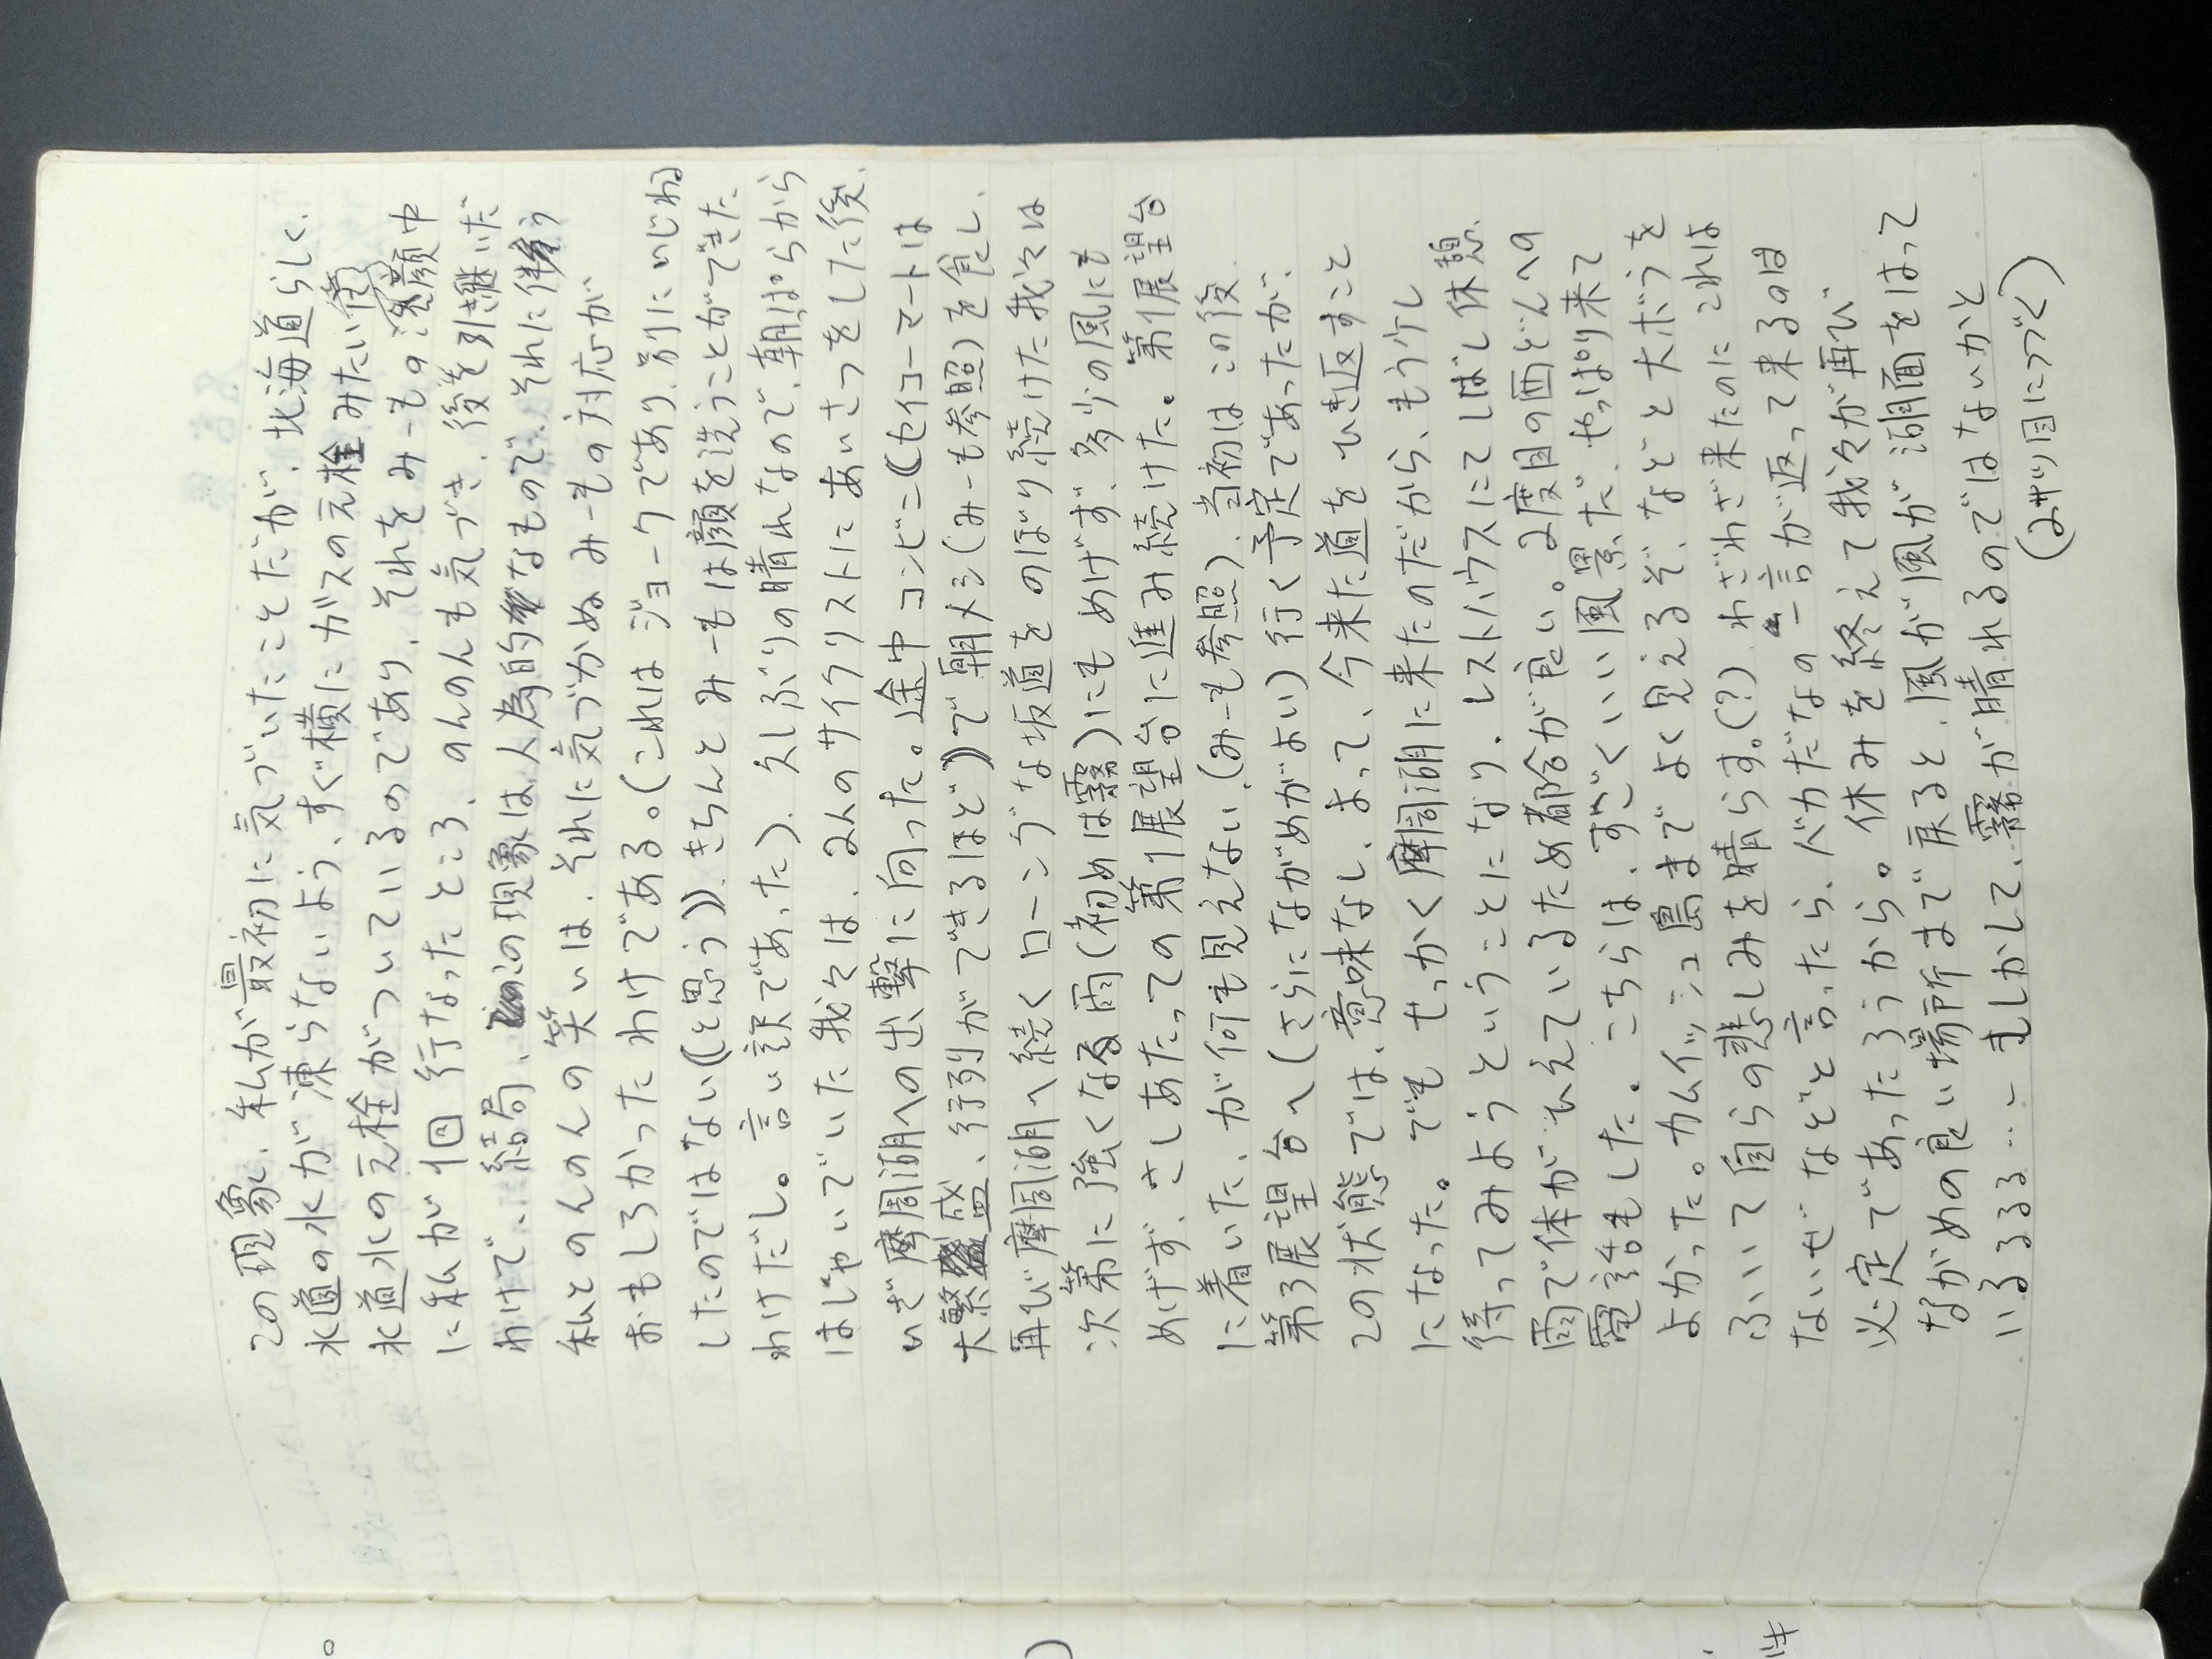 この現象、私が最初に気づいたことだが、北海道らしく、
水道の水が凍らないよう、すぐ横にガスの元栓みたいな
水道水の元栓がついているのであり、それをみーもの洗顔中
に私が1回行なったところ、のんのんも気づき、後を引き継いだ
わけで、結局、この現象は人為的なもので、それに伴う
私とのんのんの笑いは、それに気づかぬみーもの対応が
おもしろかったわけである。(これはジョークであり、別にいじわる
したのではない((と思う))、きちんとみーもは顔を洗うことができた
わけだし。言い訳であった)、久しぶりの晴れなので、朝っぱらから
はしゃいでいた我々は、2人のサイクリストにあいさつをした後、
いざ摩周湖への出撃に向った。途中コンビニ((セイコーマートは
大繁盛、行列ができるほど))で朝メシ(みーも参照)を食し、
再び摩周湖へ続くローングな坂道をのぼり続けた我々は
次第に強くなる雨(初めは霧)にもめげず、多少の風にも
めげず、さしあたっての第1展望台に進み続けた。第1展望台
に着いた、が何も見えない、(みーも参照)、当初はこの後
第3展望台へ(さらにながめがよい)行く予定であったが、
この状態では、意味なし、よって、今来た道をひき返すこと
になった。でもせっかく摩周湖に来たのだから、もう少し
待ってみようということになり、レストハウスにてしばし休憩、
雨で体がひえているため都合が良い。2度目の西どんへの
電話もした。こちらは、すごくいい風景だ、やっぱり来て
よかった。カムイッシュ島までよく見えるぞ、などと大ボラを
ふいて自らの悲しみを晴らす。(?) わざわざ来たのにこれは
ないぜなどと言ったら、バカだなの一言が返って来るのは
必定であったろうから。休みを終えて我々が再び
ながめの良い場所まで戻ると、風が風が湖面をはって
いるるる…… もしかして、霧が晴れるのではないかと
(2ページ目につづく)